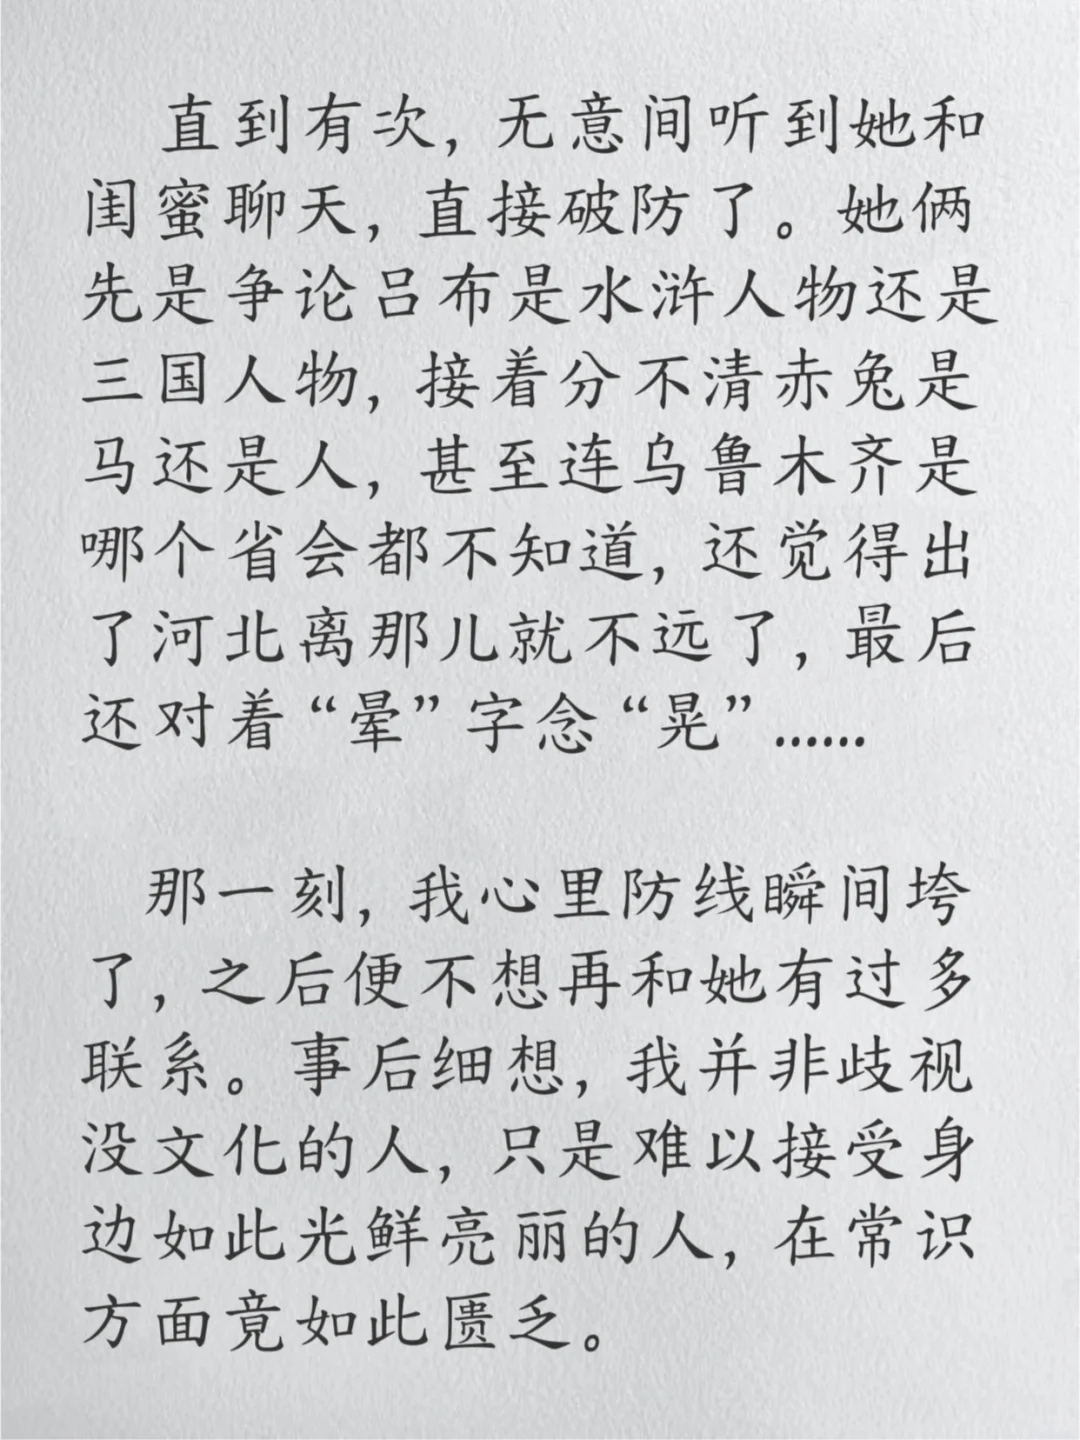 直到有次，无意间听到她和
闺蜜聊天，直接破防了。她俩
先是争论吕布是水浒人物还是
三国人物，接着分不清赤兔是
马还是人，甚至连乌鲁木齐是
哪个省会都不知道，还觉得出
了河北离那儿就不远了，最后
还对着“晕”字念“晃”……
那一刻，我心里防线瞬间垮
了，之后便不想再和她有过多
联系。事后细想，我并非歧视
没文化的人，只是难以接受身
边如此光鲜亮丽的人，在常识
方面竟如此匮乏。